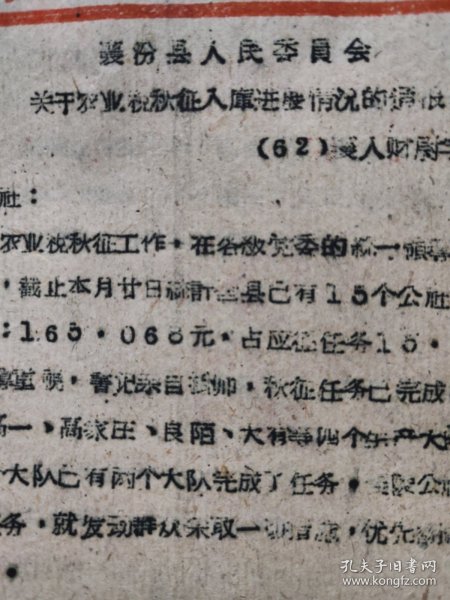 襄汾县人民委员会
关于农业税秋征入库进度情况的通报
(62)襄人财周字
社:
农业税秋征工作,在各级党委的统一领导
,截止本月廿日统计全县已有15个公社
:165.068元,占应征任务15.
重视,书记亲自挂帅,秋征任务已完成
一、高家庄、良陌、大有等四个生产大
个大队已有两个大队完成了任务,公
务,就发动群众采取一切措施,优先
。
孔夫子旧书网
www.kongfz.com